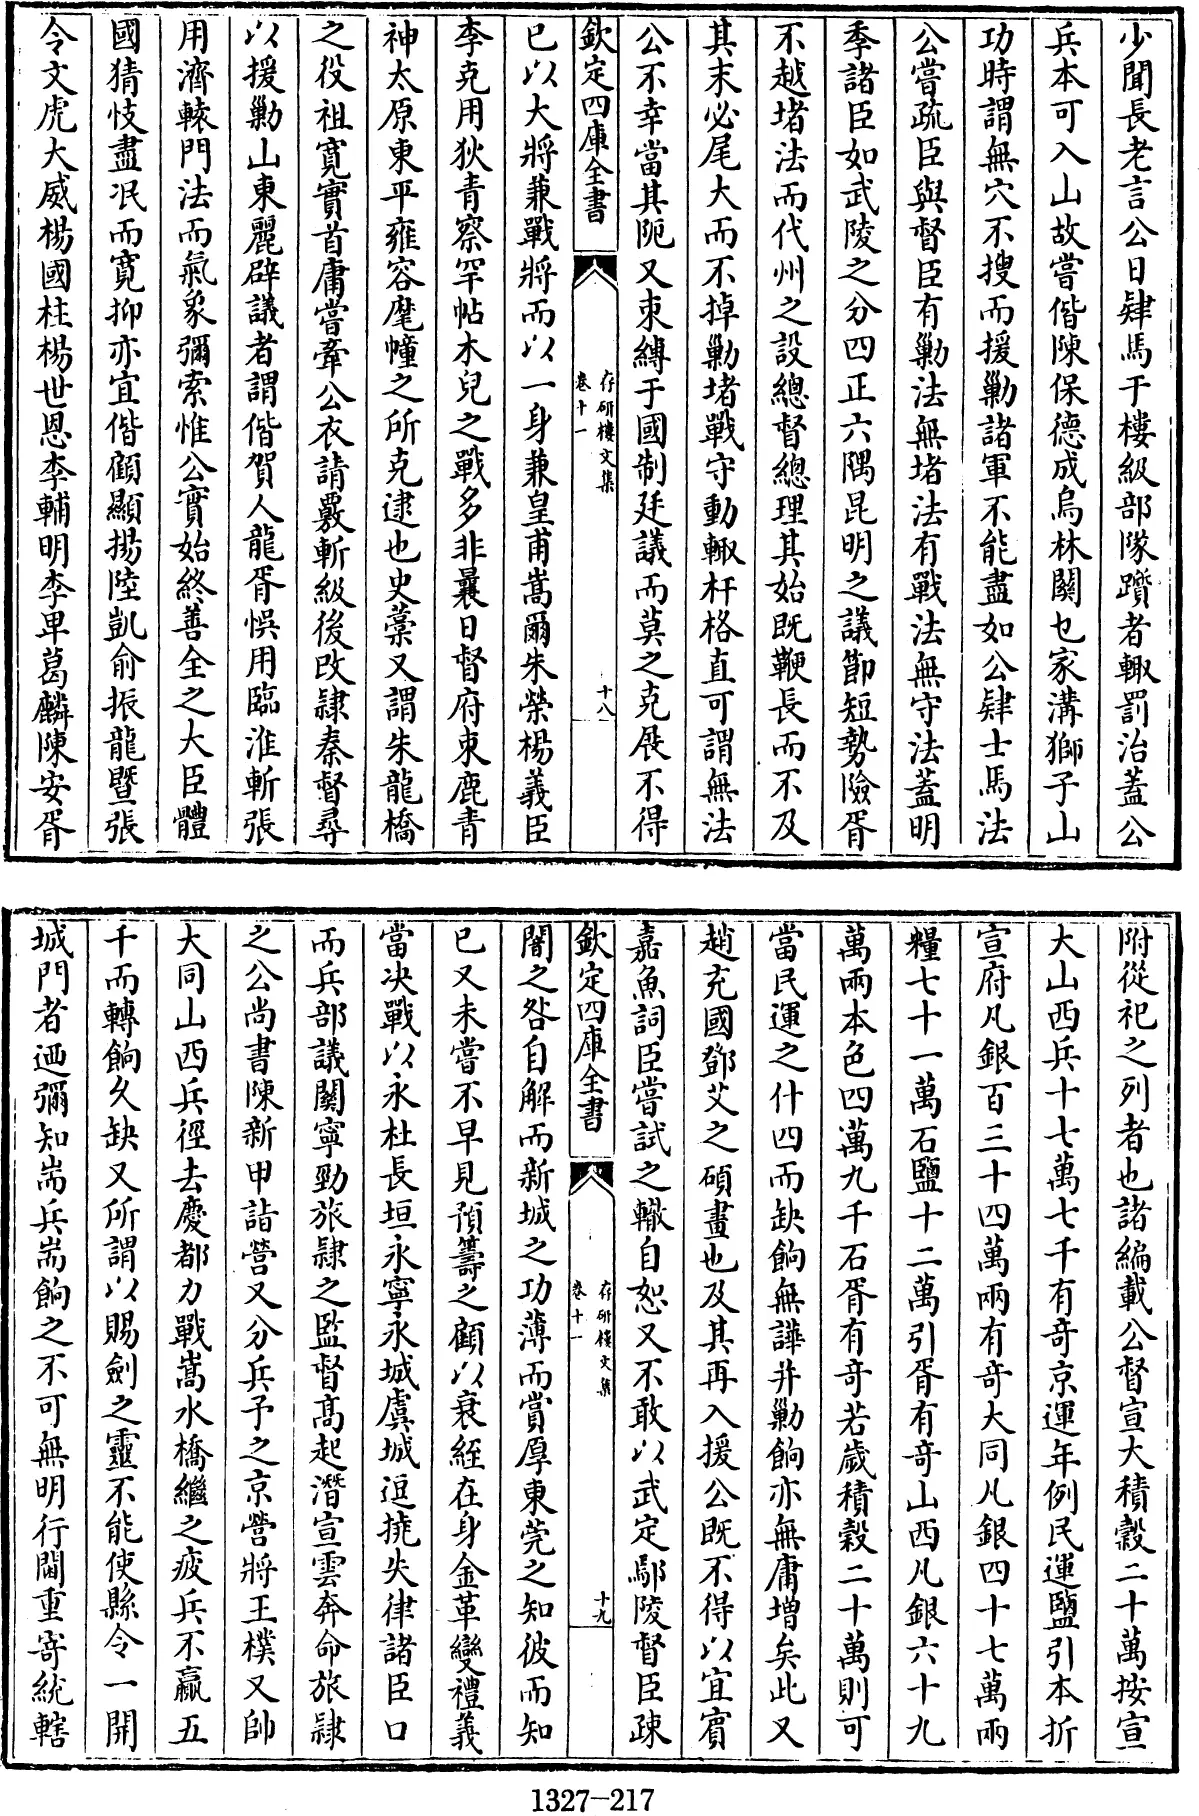 少聞長老言公日肄馬于樓級部隊躓者輙罰治蓋公
兵本可入山故嘗偕陳保德成烏林關也家溝獅子山
功時謂無穴不搜而援勦諸軍不能盡如公肄士馬法
公嘗疏臣與督臣有勦法無堵法有戰法無守法蓋明
季諸臣如武陵之分四正六隅昆明之議節短勢險胥
不越堵法而代州之設總督總理其始既鞭長而不及
其末必尾大而不掉勦堵戰守動輙杆格直可謂無法
公不幸當其阨又束縛于國制廷議而莫之克展不得
欽定四庫全書
存研樓文集
卷十一
十八
已以大將兼戰將而以一身兼皇甫嵩爾朱榮楊義臣
李克用狄青察罕帖木兒之戰多非曩日督府束鹿青
神太原東平雍容麾幢之所克逮也史藁又謂朱龍橋
之役祖寬實首庸嘗牽公衣請覈斬級後改隷秦督尋
以援勦山東麗辟議者謂偕賀人龍胥悞用臨淮斬張
用濟轅門法而氣象彌索惟公實始終善全之大臣體
國猜忮盡泯而寛抑亦宜偕顧顯揚陸凱俞振龍暨張
令文虎大威楊國柱楊世恩李輔明李卑葛麟陳安胥
附從祀之列者也諸編載公督宣大積穀二十萬按宣
大山西兵十七萬七千有奇京運年例民運鹽引本折
宣府凡銀百三十四萬兩有奇大同凡銀四十七萬兩
糧七十一萬石鹽十二萬引胥有奇山西凡銀六十九
萬兩本色四萬九千石胥有奇若歲積穀二十萬則可
當民運之什四而缺餉無譁并勦餉亦無庸增矣此又
趙充國鄧艾之碩畫也及其再入援公既不得以宜賓
嘉魚詞臣嘗試之轍自恕又不敢以武定鄢陵督臣疎
欽定四庫全書
存研樓文集
卷十一
十九
闇之咎自解而新城之功薄而賞厚東莞之知彼而知
已又未嘗不早見預籌之顧以衰絰在身金革變禮義
當决戰以永杜長垣永寧永城虞城逗撓失律諸臣口
而兵部議關寧勁旅隷之監督髙起潛宣雲奔命旅隷
之公尚書陳新甲詣營又分兵予之京營將王樸又帥
大同山西兵徑去慶都力戰嵩水橋繼之疲兵不羸五
千而轉餉久缺又所謂以賜劍之靈不能使縣令一開
城門者廼彌知耑兵耑餉之不可無明行閫重寄統轄
1327-217